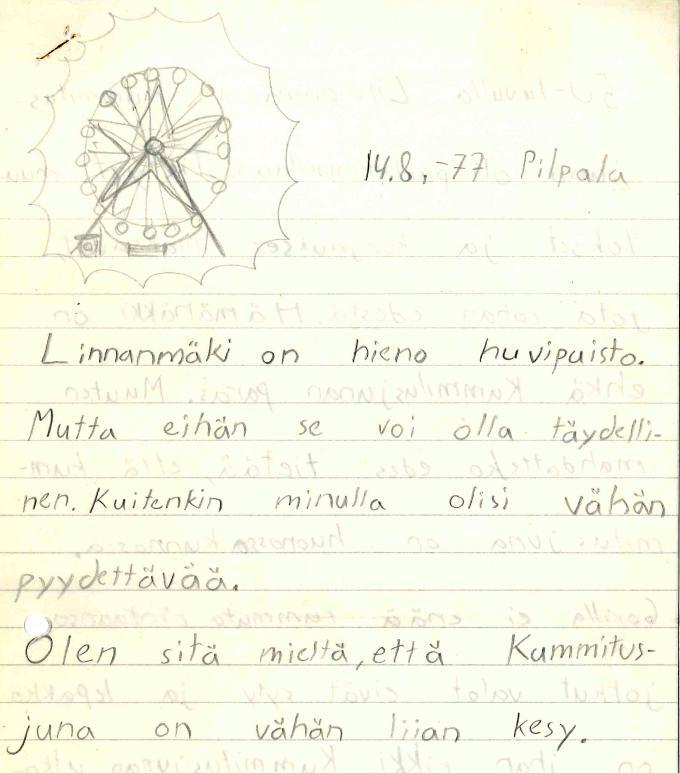 14.8,-77 Pilpala
Linnanmäki on hieno huvipuisto.
Mutta eihän se voi olla täydelli-
nen. Kuitenkin minulla olisi vähän
pyydettävää.
Olen sitä mieltä, että Kummitus-
juna on vähän liian kesy.